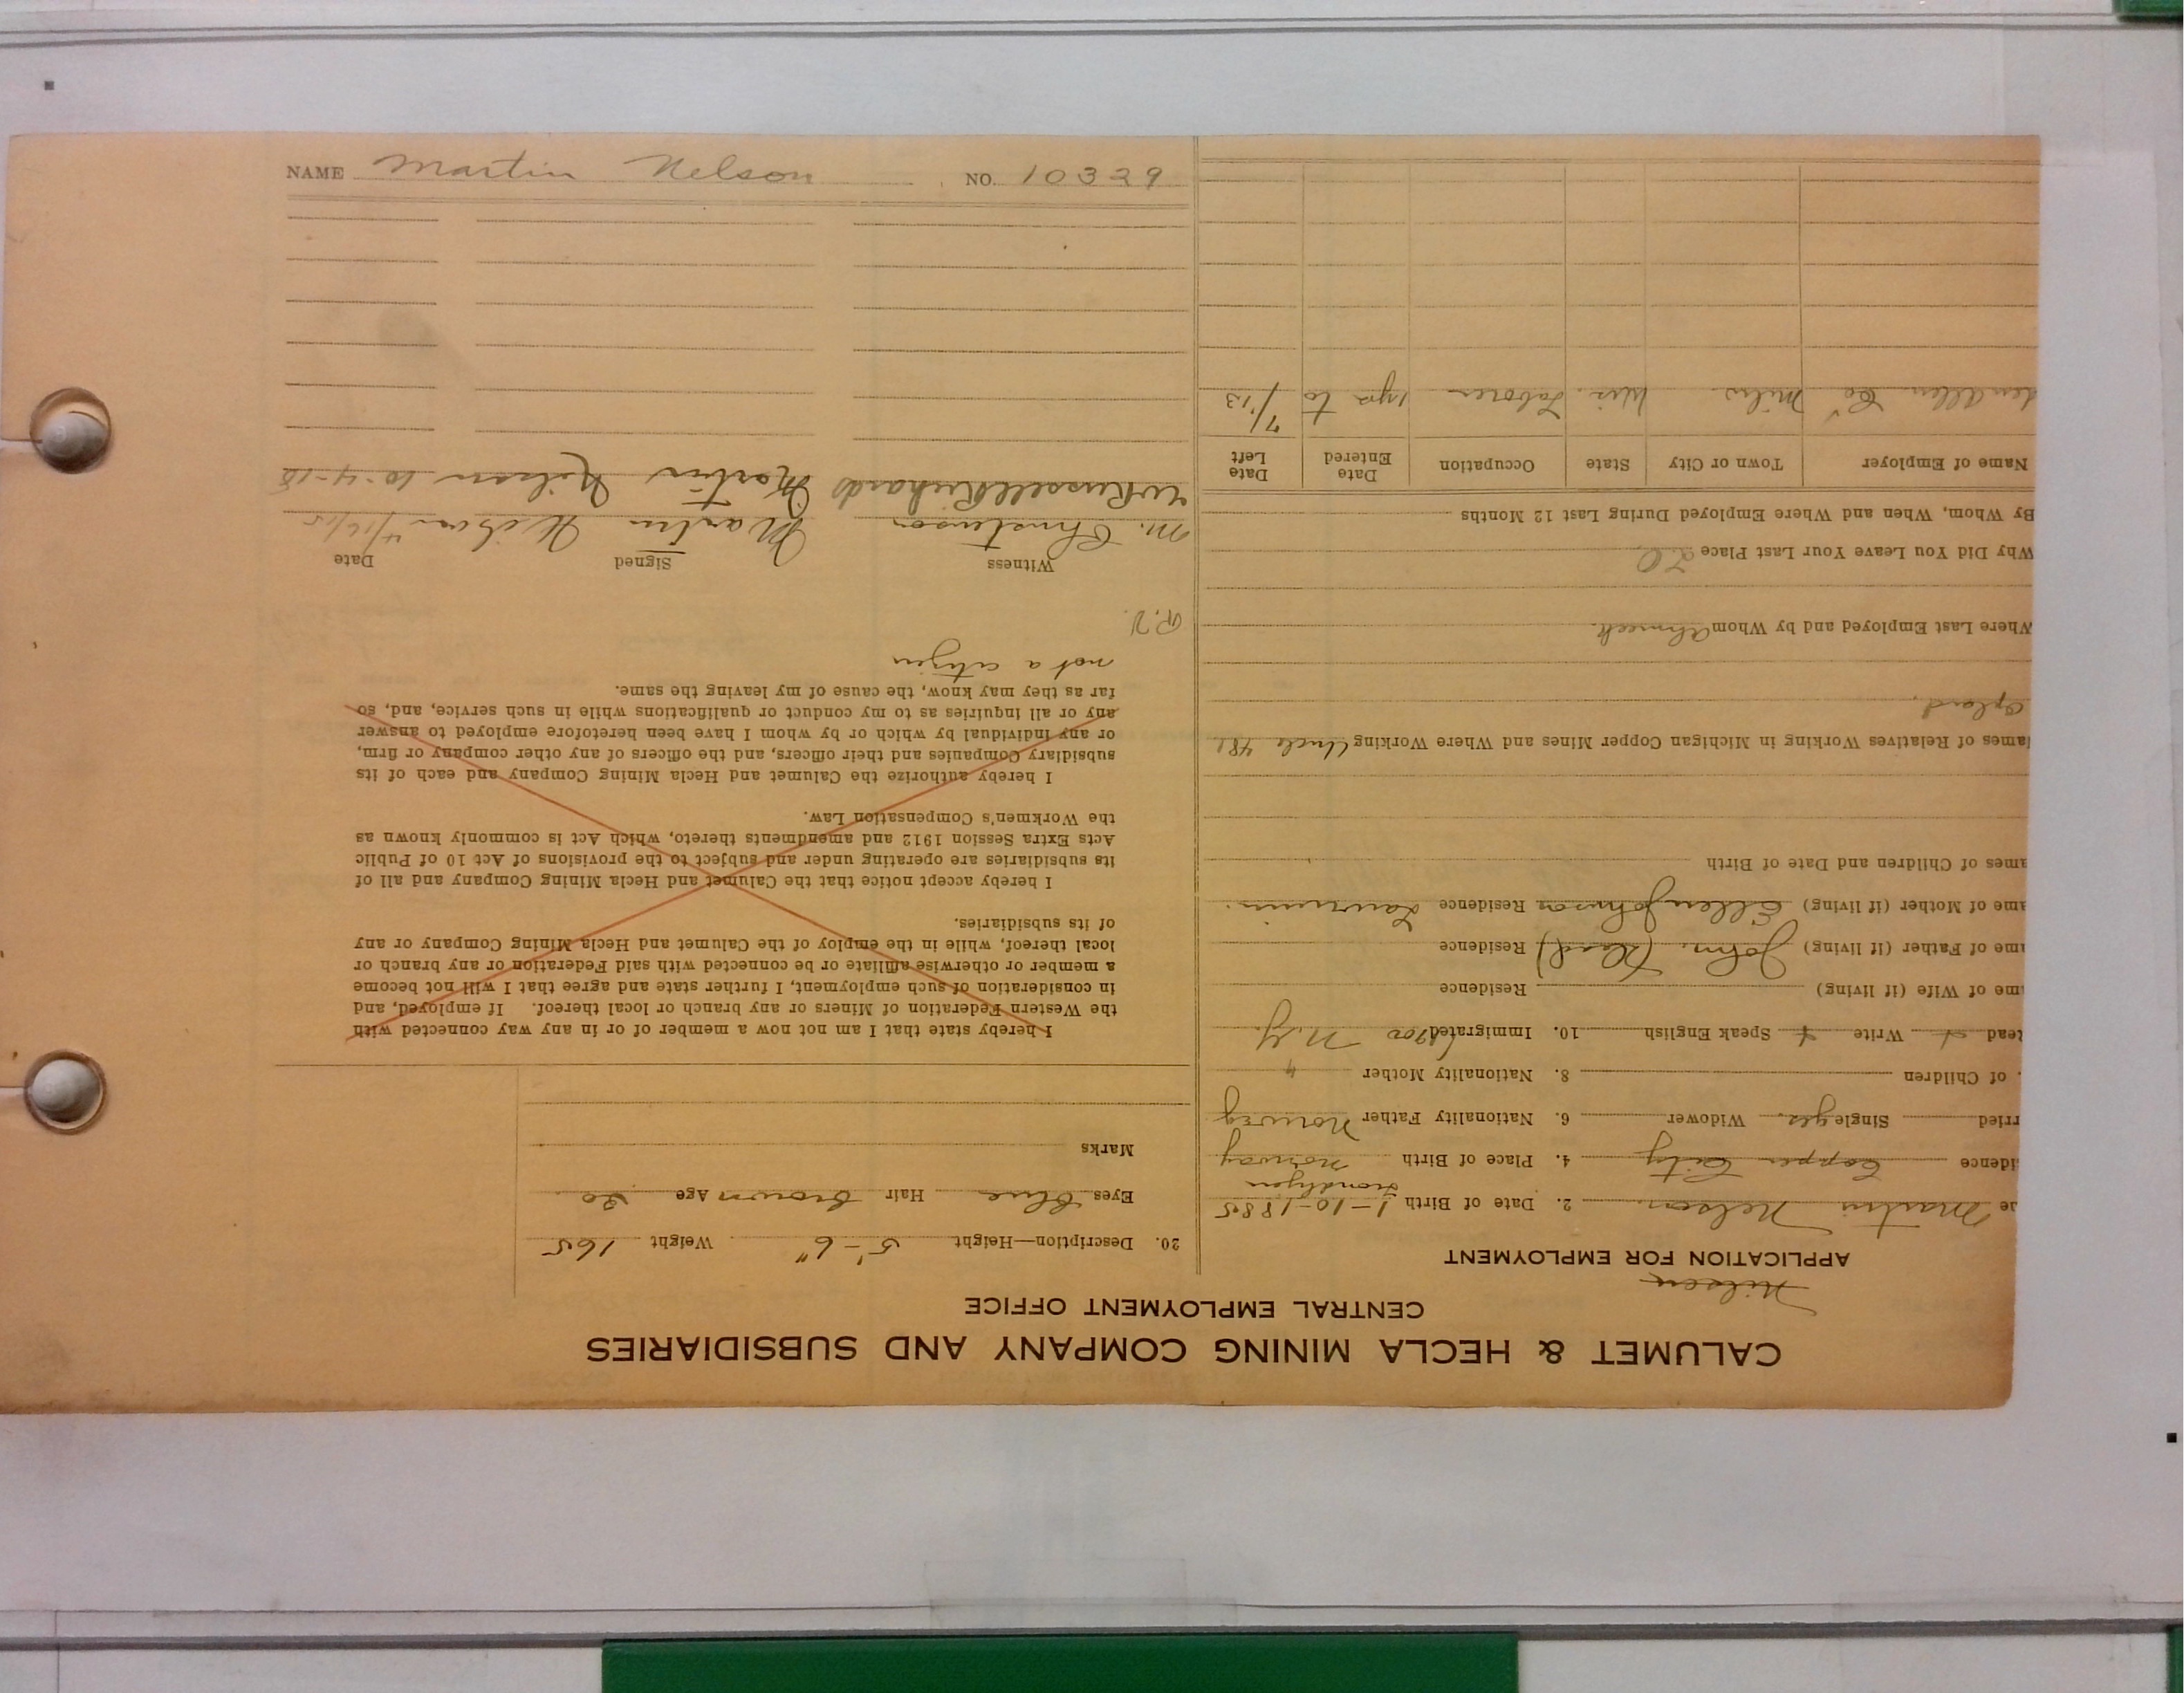 CALUMET & HECLA MINING COMPANY AND SUBSIDIARIES
CENTRAL EMPLOYMENT OFFICE
Nilsen
APPLICATION FOR EMPLOYMENT
Martin Nelson. 2. Date of Birth 1-10-1885
idence Copper City 4. Place of Birth Norway
rried Single yes. Widower 6. Nationality Father Norweg
. of Children 8. Nationality Mother "
Read + Write + Speak English 10. Immigrated 1900 N.Y.
ame of Wife (if living) Residence
ame of Father (if living) John. (Dead) Residence
ame of Mother (if living) Ellen Johnson Residence
ames of Children and Date of Birth
ames of Relatives Working in Michigan Copper Mines and Where Working Uncle
Opland.
Where Last Employed and by Whom Ahmeek.
Why Did You Leave Your Last Place
By Whom, When and Where Employed During Last 12 Months
Name of Employer Town or City State Occupation Date Entered Date Left
Allen Co Milw. Wis. Laborer 1 yr to 7/13
20. Description—Height 5'-6" Weight 165
Eyes Blue Hair Brown Age 30
Marks
I hereby state that I am not now a member of or in any way connected with
the Western Federation of Miners or any branch or local thereof. If employed, and
in consideration of such employment, I further state and agree that I will not become
a member or otherwise affiliate or be connected with said Federation or any branch or
local thereof, while in the employ of the Calumet and Hecla Mining Company or any
of its subsidiaries.
I hereby accept notice that the Calumet and Hecla Mining Company and all of
its subsidiaries are operating under and subject to the provisions of Act 10 of Public
Acts Extra Session 1912 and amendments thereto, which Act is commonly known as
the Workmen's Compensation Law.
I hereby authorize the Calumet and Hecla Mining Company and each of its
subsidiary Companies and their officers, and the officers of any other company or firm,
or any individual by which or by whom I have been heretofore employed to answer
any or all inquiries as to my conduct or qualifications while in such service, and, so
far as they may know, the cause of my leaving the same.
not a citizen
Witness Signed Date
M. Christensen Martin Nilsen 4/16/15
W Russell Richards Martin Nilsen 10-4-15
NAME Martin Nelson NO. 10339